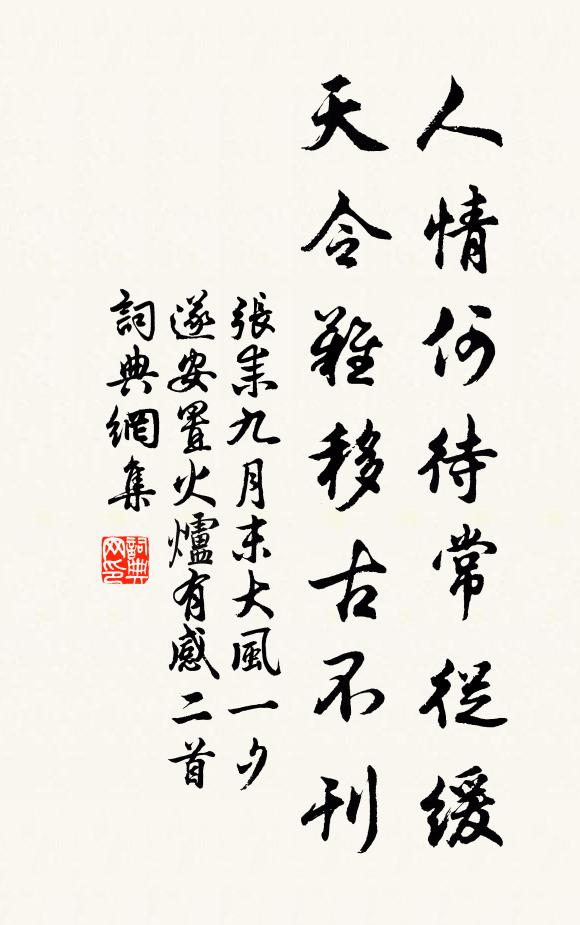 人情何待常從緩
天令難移古不刊
張耒九月末大風一夕
遂安置火爐有感二首
詞典網集
詞典
网印